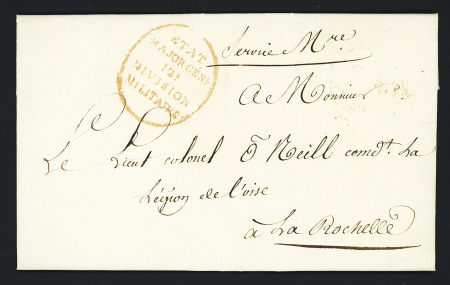 ETAT
MAJOR GÉNÉ
12e
DIVISION
MILITAIRE
Service Mre
A Monsieur
Le Lieut colonel ô Neill comdt La
Légion de l'oise
à La Rochelle